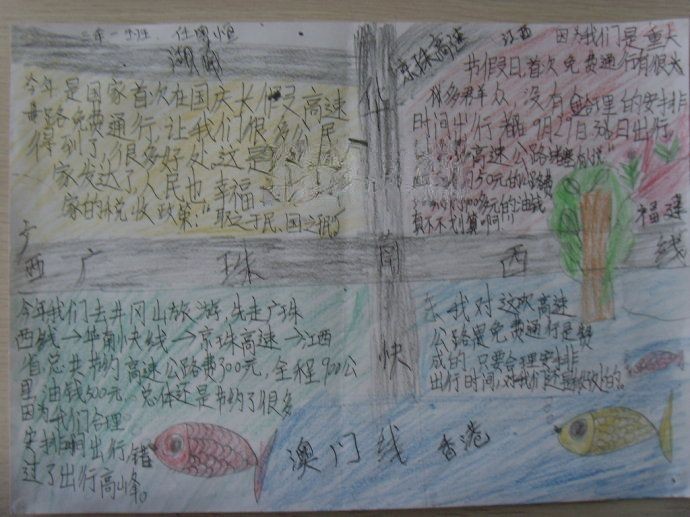 湖
京珠高速 江西
今年是国家首次在国庆长假高速
公路免费通行,让我们很多人民
得到了很多好处,这是
家发达了,人民也幸福
家的税收政策:"取之于民,
因为我们是重大
节假日首次免费通行有很大
很多群众,没有合理的安排
时间出行都9月29日30日出行
高速公路
50元的路费
的油钱
真不划算啊!
福建
西 广 珠 南 西 线
华
快
今年我们去井冈山旅游,先走广珠
西线→华南快线→京珠高速→江西
省总共节约高速公路费300元,全程900公
里,油钱500元,总体还是节约了很多
因为我们合理
安排时间出行,错
过了出行高峰。
我对这次高速
公路免费通行是赞
成的,只要合理安排
出行时间,对我们还是
澳门线 香港